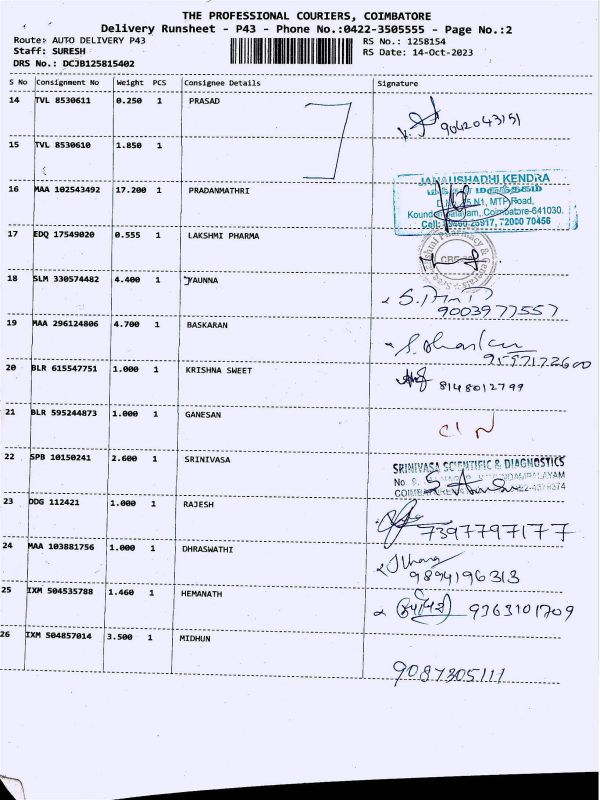 THE PROFESSIONAL COURIERS, COIMBATORE
Delivery Runsheet - P43 - Phone No.:0422-3505555 - Page No.:2
Route: AUTO DELIVERY P43 RS No.: 1258154
Staff: SURESH RS Date: 14-Oct-2023
DRS No.: DCJB125815402
S No Consignment No Weight PCS Consignee Details Signature
14 TVL 8530611 0.250 1 PRASAD 9042043151
15 TVL 8530610 1.850 1
16 MAA 102543492 17.200 1 PRADANMATHRI
JANAUSHADHI KENDRA
மக்கள் மருந்தகம்
N1, MTP Road,
Coimbatore-641030.
Cell: 72000 70456
17 EDQ 17549020 0.555 1 LAKSHMI PHARMA
18 SLM 330574482 4.400 1 YAUNNA
9003977557
19 MAA 296124806 4.700 1 BASKARAN
9597172600
20 BLR 615547751 1.000 1 KRISHNA SWEET 8148012799
21 BLR 595244873 1.000 1 GANESAN
22 SPB 10150241 2.600 1 SRINIVASA
SRINIVASA SCIENTIFIC & DIAGNOSTICS
23 DDG 112421 1.000 1 RAJESH
7397797177
24 MAA 103881756 1.000 1 DHRASWATHI
9894196313
25 IXM 504535788 1.460 1 HEMANATH 9363101709
26 IXM 504857014 3.500 1 MIDHUN
9087305111